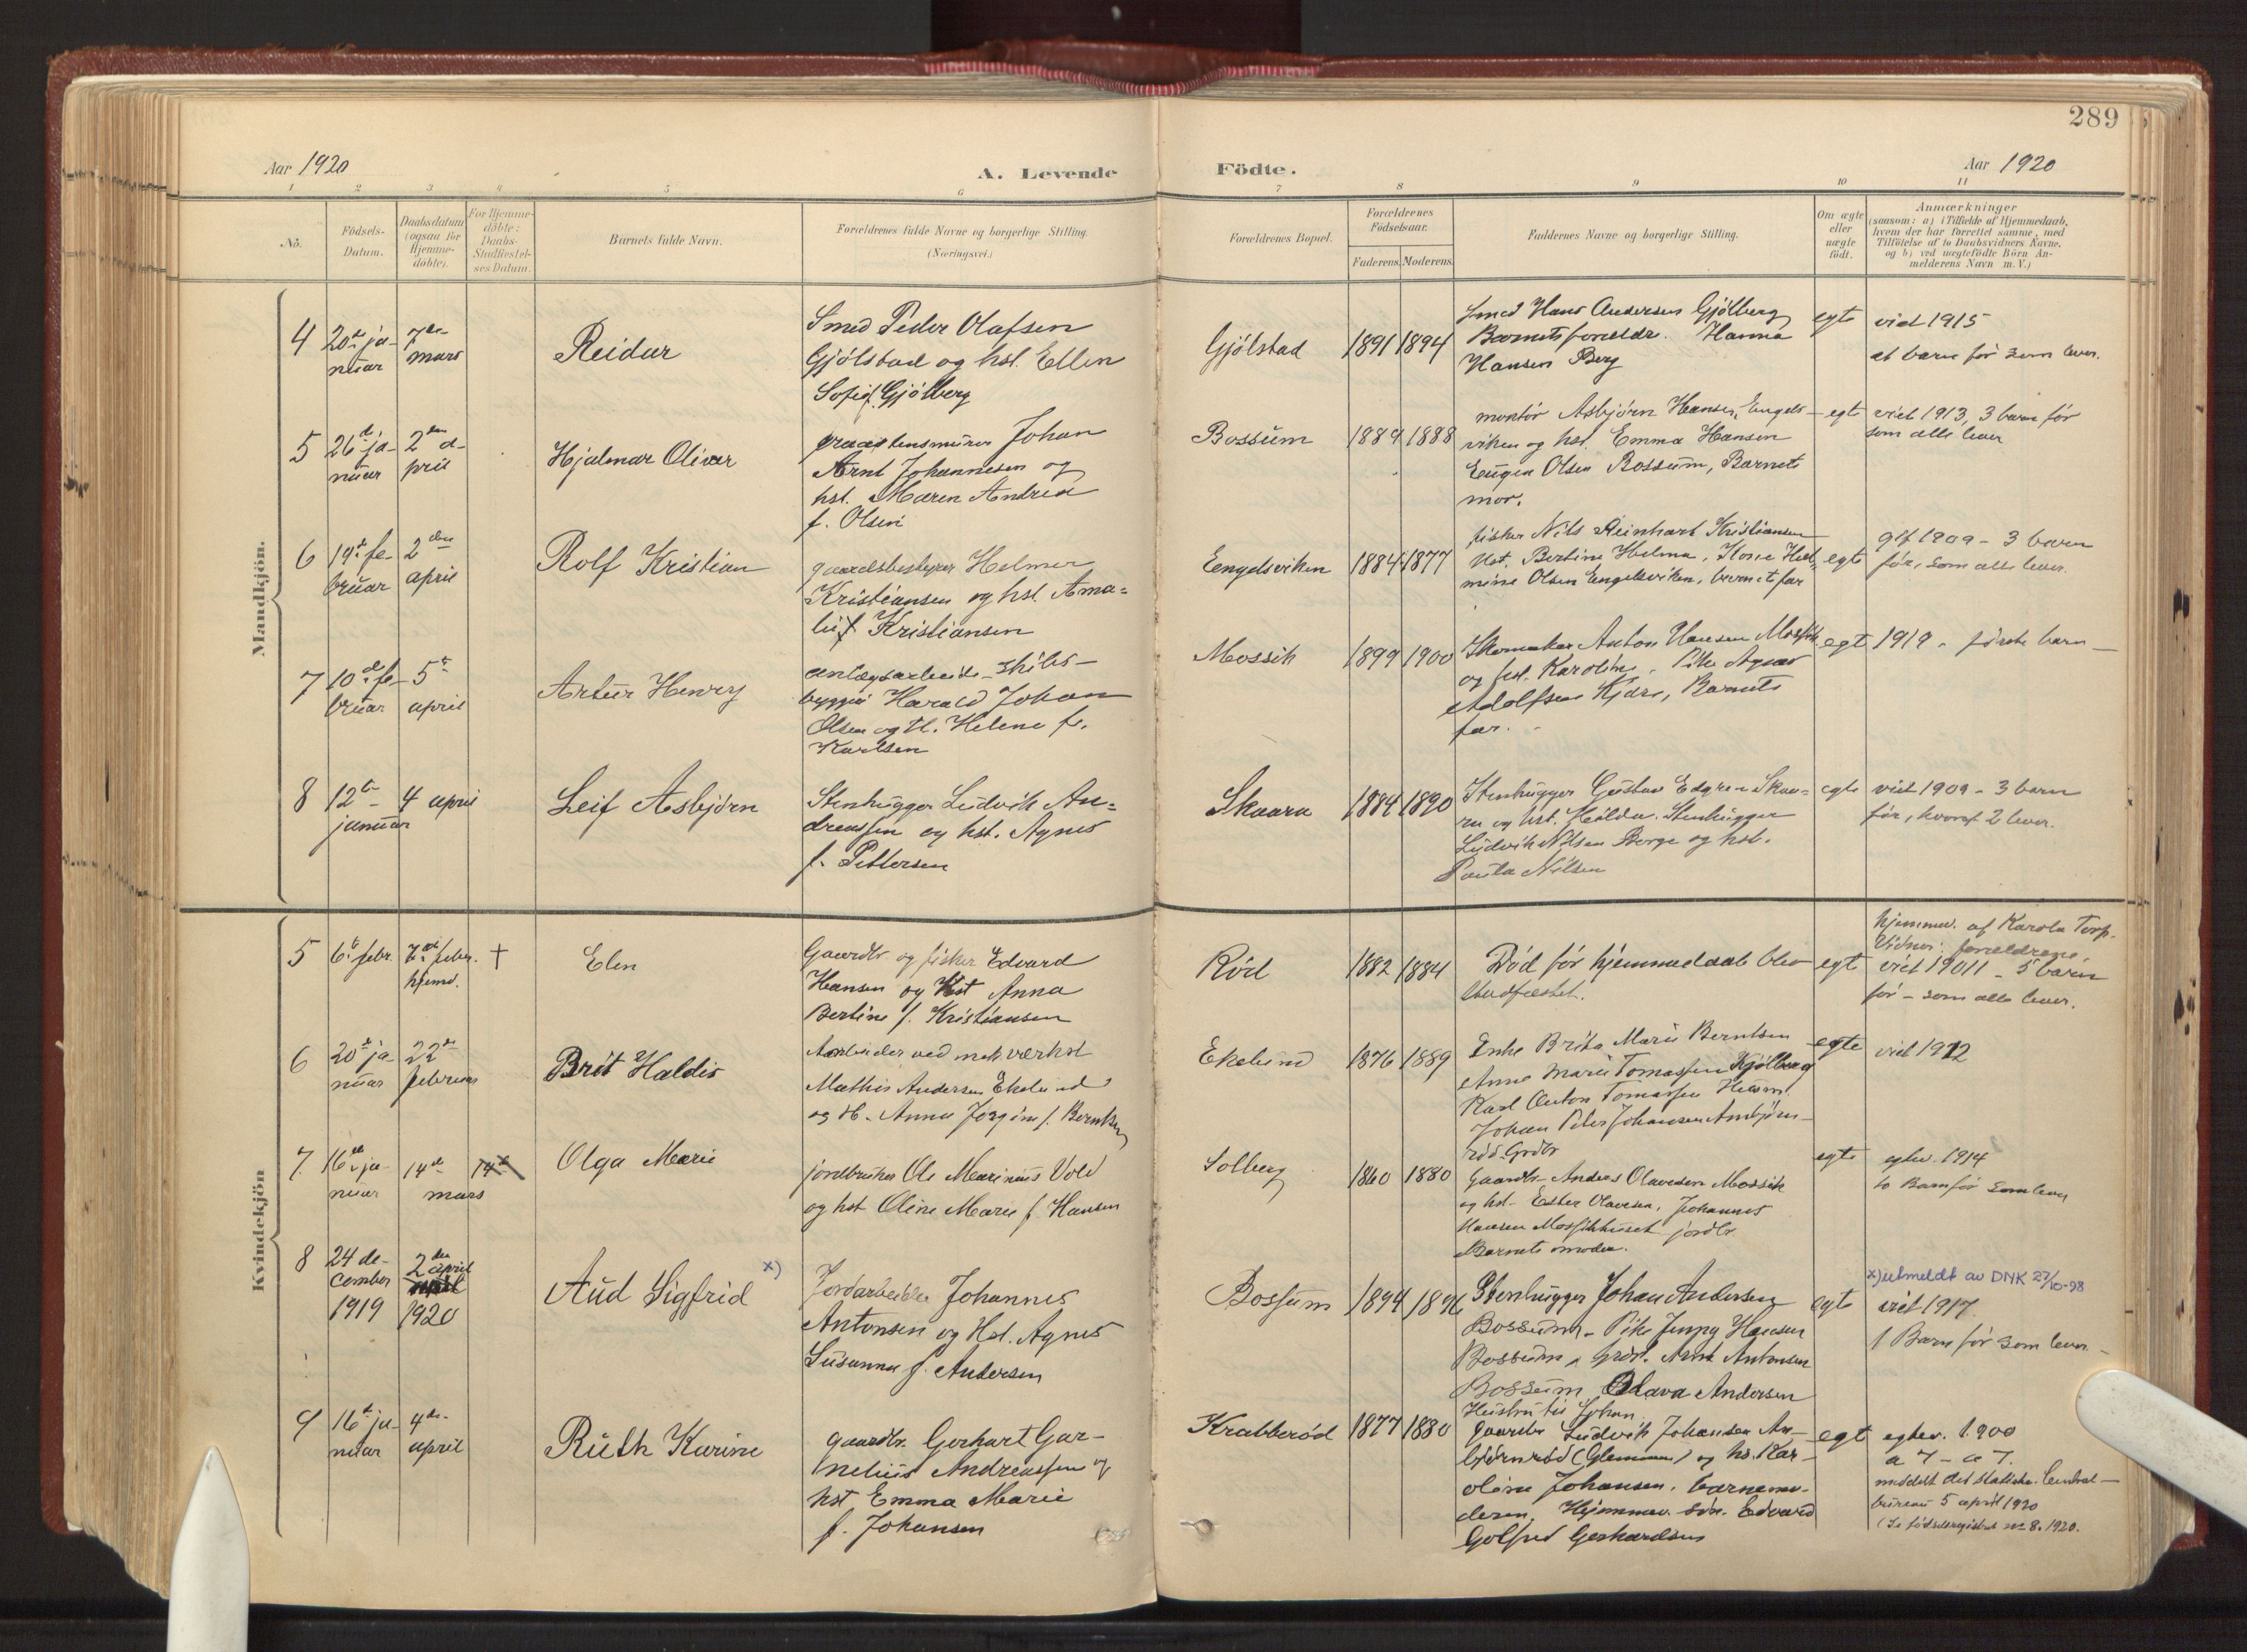 289
Aar 1920
A. Levende
Födte.
Aar 1920
1 2 3 4 5 6 7 8 9 10 11
No.
Födsels-
Datum.
Daabsdatum
(ogsaa for
Hjemme-
döbte).
For Hjemme-
döbte:
Daabs-
Stadfæstel-
ses Datum.
Barnets fulde Navn.
Forældrenes fulde Navne og borgerlige Stilling.
(Næringsvei.)
Forældrenes Bopæl.
Forældrenes
Födselsaar.
Faderens. Moderens.
Faddernes Navne og borgerlige Stilling.
Om ægte
eller
uægte
födt.
Anmærkninger
(saasom: a) i Tilfælde af Hjemmedaab,
hvem der har forrettet samme, med
Tilföielse af to Daabsvidners Navne,
og b) ved uægtefödte Börn An-
melderens Navn m. V.)
Mandkjön.
4
20de ja-
nuar
7de
mars
Reidar
Smed Peder Olafsen
Gjölstad og hst. Ellen
Sofie f. Gjölberg
Gjölstad
1891 1894
Smed Hans Andersen Gjölberg
Barnets foreldr. Hanna
Hansen Berg
egte
viet 1915
et barn før som lever.
5
26de ja-
nuar
2den a-
pril
Hjalmar Olivar
graastensmurer Johan
Arnt Johannesen og
hst. Maren Andrea
f. Olsen
Bossum
1889 1888
montör Asbjörn Hansen, Engels-
viken og hst. Emma Hansen
Eugen Olsen Bossum, Barnets
mor.
egte
viet 1913, 3 barn før
som alle lever
6
19de fe-
bruar
2den
april
Rolf Kristian
gaardsbestyrer Helmer
Kristiansen og hst. Ama-
lie f. Kristiansen
Engelsviken
1884 1877
fisker Nils Reinhart Kristiansen
Hst. Bertine Helena,
mine Olsen Engelsviken, barnets far
egte
gift 1909 - 3 barn
før, som alle lever.
7
10de fe-
bruar
5te
april
Artur Henry
anlægsarbeide, skibs-
bygger Harald Johan
Olsen og H. Helene f.
Karlsen
Mossik
1899 1900
Skomaker Anton Hansen Mossik
og hst. Karoline, Pike Agnes
Adolfsen Kjære, Barnets
far.
egt
1919 - første barn
8
12te
januar
4 april
Leif Asbjörn
Stenhugger Ludvik An-
dreassen og hst. Agnes
f. Pettersen
Skaara
1884 1890
Stenhugger Gustav Edgren Skaa-
ra og hst. Hilda. Stenhugger
Ludvik Nilsen Borge og hst.
Paula Nilsen
egte
viet 1909 - 3 barn
før, hvoraf 2 lever.
Kvindekjön
5
6te febr.
7de febr.
hjemd.
†
Elen
Gaardbr og fisker Edvard
Hansen og Hst Anna
Bertine f. Kristiansen
Rød
1882 1884
Död før hjemmedaab blev
stadfæstet.
egt
hjemmed. af Karola Torp.
Vidner: forældrene.
viet 19011 - 5 barn
før - som alle lever.
6
20de ja-
nuar
22de
februar
Brit Haldis
Arbeider ved mek værkst
Mathis Andersen Ekelund
og H. Anna Jörgine f. Berntsen
Ekelund
1876 1889
Enke Brita Marie Berntsen
Anne Marie Tomassen Kjölberg
Karl Anton Tomassen
Johan Peter Johansen Ambjörn-
röd. Grdbr
egte
viet 1912
7
16de ja-
nuar
14de
mars
14de
Olga Marie
jordbruker Ole Marinius Vold
og hst Oline Marie f. Hansen
Solberg
1860 1880
gaardbr. Anders Olavesen Mossik
og hst. Ester Olavesen, Johannes
Hansen Mossikhuset jordbr
Barnets moder.
egte
egtev. 1914
to Barn før som lever
8
24 de-
cember
1919
2den april
1920
Aud Sigfrid x)
Jordarbeider Johannes
Antonsen og Hst. Agnes
Susanna f. Andersen
Bossum
1894 1896
Stenhugger Johan Andersen
Bossum - Pike Jenny Hansen
Bossum, Grdbr. Arnt Antonsen
Bossum Olava Andersen
Hustru til Johan.
egte
x) utmeldt av DNK 27/10-98
viet 1917.
1 Barn før som lever -
9
16de ja-
nuar
4de
april
Ruth Karine
gaardbr. Gerhart Gar-
nelius Andreassen og
hst Emma Marie
f. Johansen
Krabberød
1877 1880
gaardbr Ludvik Johansen Am-
björnrød (Glemmen) og hs. Kar-
oline Johansen, barnemo-
deren, Hjemmev. sön. Edvard
Golfred Gerhardsen
egt
egtev. 1900
a 7 - c 7.
meddelt det statistiske Central-
bureau 5 april 1920
(Se födselsregistret no 8. 1920.